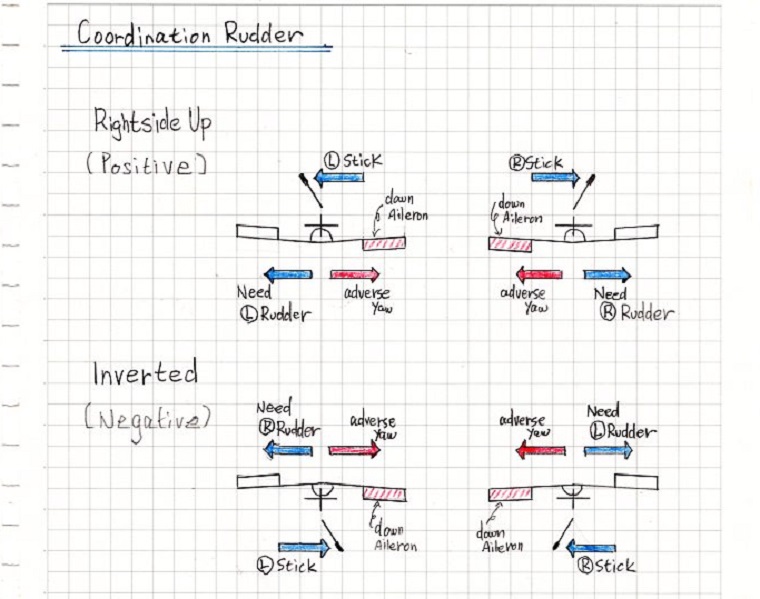 Coordination Rudder
Rightside Up
(Positive)
Ⓛ Stick
down
Aileron
Need
Ⓛ Rudder
adverse
Yaw
Ⓡ Stick
down
Aileron
adverse
Yaw
Need
Ⓡ Rudder
Inverted
(Negative)
Need
Ⓡ Rudder
adverse
Yaw
down
Aileron
Ⓛ Stick
adverse
Yaw
Need
Ⓛ Rudder
down
Aileron
Ⓡ Stick